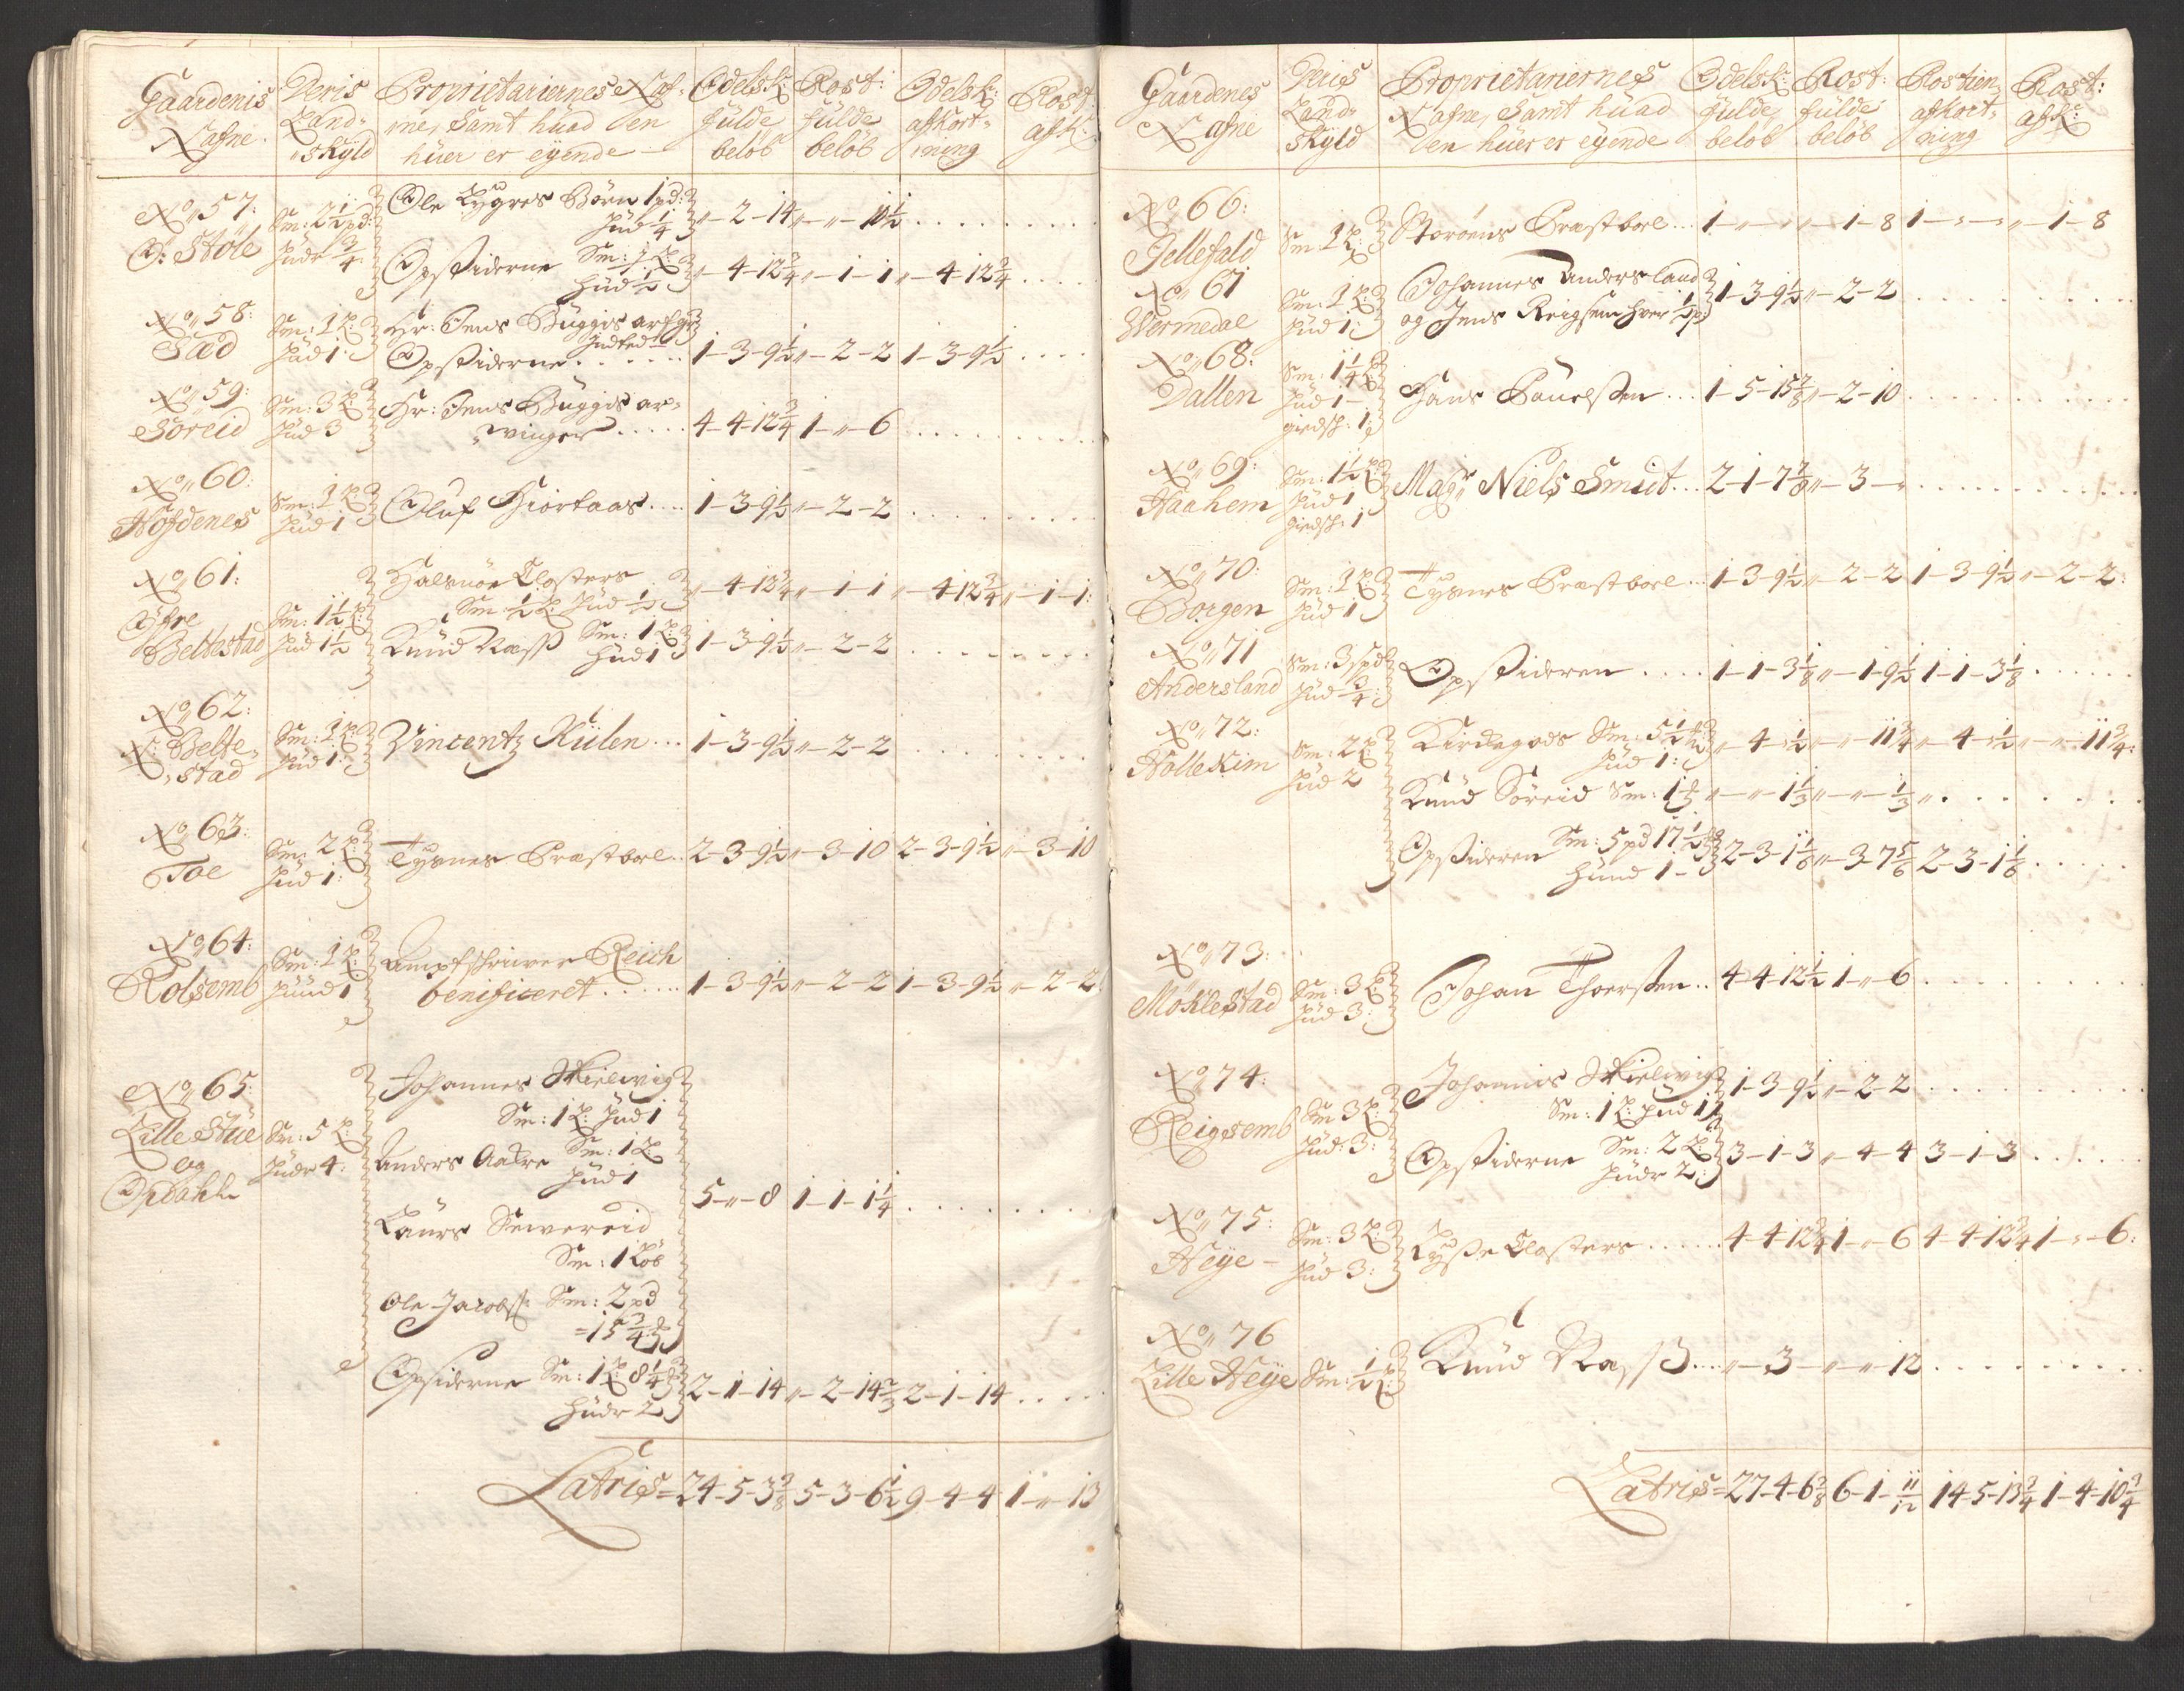 Gaardenis Nafne
Deris Land-skyld
Proprietariernes Naf-
ne, Samt huad en
huer er eÿende
Odelsk: fulde beløb
Rost: fulde beløb
Odelsk: afkort-ning
Rost: afk:
No 57: Ø: Støle
Sm: 2 1/2 pd: Hud 3/4
Ole Lygres Børn 1 pd: Hud 1/4
„-2-14 „-„-10 1/2
Opsiderne Sm: 1 L: Hud 1/2
„-4-12 3/4 „-1-1 „-4-12 3/4
No 58: Sæd
Sm: 1 L: Hud 1:
Hr: Jens Buggis
Opsiderne
1-3-9 1/2 „-2-2 1-3-9 1/2
No 59: Søreid
Sm: 3 L: Hud 3
Hr: Jens Buggis ar-
winger
4-4-12 3/4 1-„-6
No 60: Hofdenes
Sm: 1 L: Hud 1
Oluf Hiortaas
1-3-9 1/2 „-2-2
No 61: Øfre Beltestad
Sm: 1 1/2 L: Hud 1 1/2
Halsnøe Closters
Sm: 1/2 L: Hud 1/2
„-4-12 3/4 „-1-1 „-4-12 3/4 „-1-1:
Knud Næss Sm: 1 L: Hud 1
1-3-9 1/2 „-2-2
No 62: N: Belte-stad
Sm: 1 L: Hud 1:
Vincentz Kulen
1-3-9 1/2 „-2-2
No 63: Toe
Sm: 2 L: Hud 1:
Tysnes Præstboel
2-3-9 1/2 „-3-10 2-3-9 1/2 „-3-10
No 64: Rolsemb
Sm: 1 L: Huud 1
Amptschriuer Reich
benificeret
1-3-9 1/2 „-2-2 1-3-9 1/2 „-2-2
No 65: Lille Stue og Opdahle
Sm: 5 L: Huder 4:
Johannes Skielwig
Sm: 1 L: Hud 1
Anders Aadre Sm: 1 L: Hud 1
Laurs Sewereid
Sm: 1 Løb
5-„-8 1-1-1 1/4
Ole Jacobss: Sm: 2 pd
15 3/4
Opsiderne Sm: 1 L: 8 1/4 Huder 2
2-1-14 „-2-14 2/3 2-1-14
Latris = 24-5-3 3/8 5-3-6 1/2 9-4-4 1-„-13
Gaardenes Nafne
Deris Land-skyld
Proprietariernes
Nafne, Samt huad
en huer er eÿende
Odelsk: fulde beløb
Rost: fulde beløb
Rostien- afkort-ning
Rost: afk:
No 66: Gellefald
Sm: 1 L:
Storøens Præstboel
1-„-„ „-1-8 1-„-„ „-1-8
No 67 Wermedal
Sm: 1 L: Hud 1:
Johannes Andersland
og Jens Reigsem huer 1/2 p:
1-3-9 1/2 „-2-2
No 68: Dallen
Sm: 1 1/4 L: Hud 1- giedsk: 1:
Hans Pouelsen
1-5-15 7/8 „-2-10
No 69: Haahem
Sm: 1 1/2 L: Hud 1 giedsk: 1
Magr: Niels Smidt
2-1-7 7/8 „-3-„
No 70: Borgen
Sm: 1 L: Hud 1
Tysnes Præstboel
1-3-9 1/2 „-2-2 1-3-9 1/2 „-2-2:
No 71 Andersland
Sm: 3 spd Hud 3/4:
Opsideren
1-1-3 1/8 „-1-9 1/2 1-1-3 1/8
No 72: Hollekim
Sm: 2 L: Hud 2
Kirchegods Sm: 5 1/2 Hud 1:
„-4-1/2 „-„-11 3/4 „-4-1/2 „-„-11 3/4:
Knud Søreid Sm: 1
„-„-1 1/3 „-„-1/3
Opsideren Sm: 5 pd 17 1/2 Huud 1-
2-3-1 1/8 „-3-7 5/6 2-3-1 1/8
No 73: Møklestad
Sm: 3 L: Hud 3:
Johan Thoersen
4-4-12 1/2 1-„-6
No 74: Reigsemb
Sm: 3 L: Hud: 3:
Johannis Skielwig
Sm: 1 L: Hud 1
1-3-9 1/2 „-2-2
Opsiderne Sm: 2 L: Huder 2:
3-1-3 „-4-4 3-1-3
No 75: Heÿe
Sm: 3 L: Hud 3:
Lyse Closters
4-4-12 3/4 1-„-6 4-4-12 3/4 1-„-6:
No 76 Lille Heÿe
Sm: 1/2 L:
Knud Næss
„-3-„ „-„-12
Latris = 27-4-6 3/8 6-1-11/12 14-5-13 3/4 1-4-10 3/4